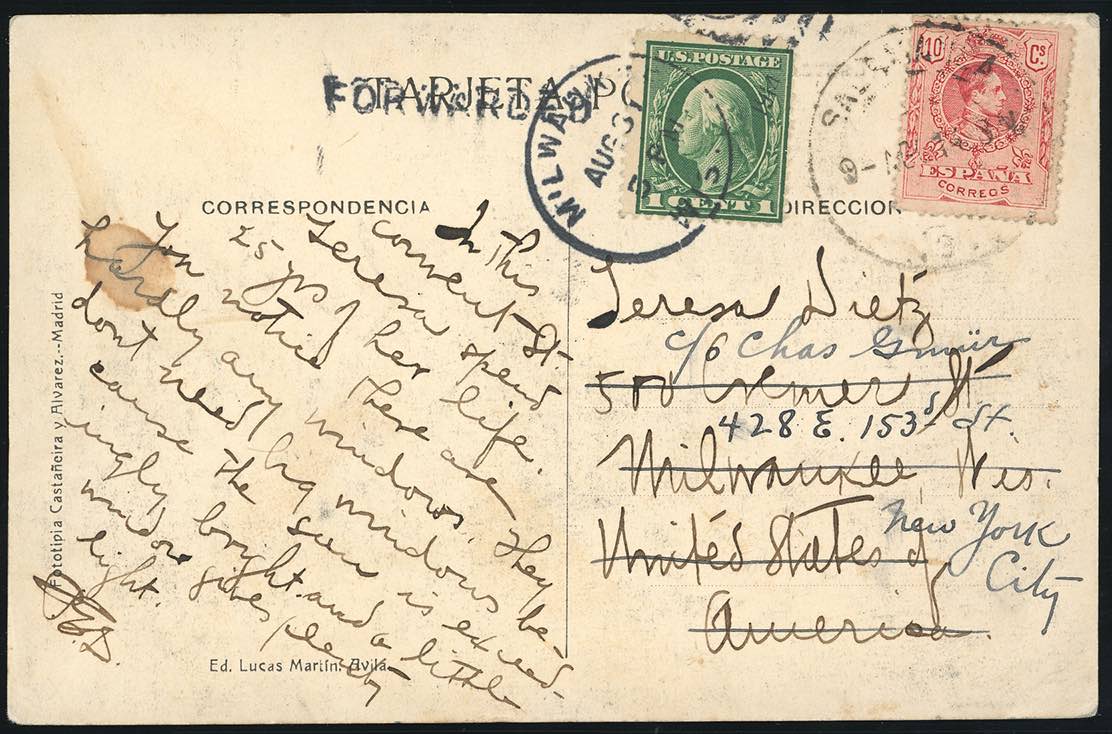 TARJETA PO
FORWARDED
MILWAUKEE
AUG 31
U.S. POSTAGE
1 CENT 1
10 Cs
ESPAÑA
CORREOS
CORRESPONDENCIA
DIRECCION
In this
convent St.
Teresa spend
25 yrs of her life.
You notice there are
hardly any windows. They
dont need big windows be-
cause the sun is exceed-
ingly bright and a little
window gives plenty
light.
Teresa Dietz
c/o Chas Gmür
500 St
428 E. 153d St.
Milwaukee, Wis.
United States of
New York
City
America.
Fototipia Castañeira y Alvarez.--Madrid
Ed. Lucas Martín. Avila